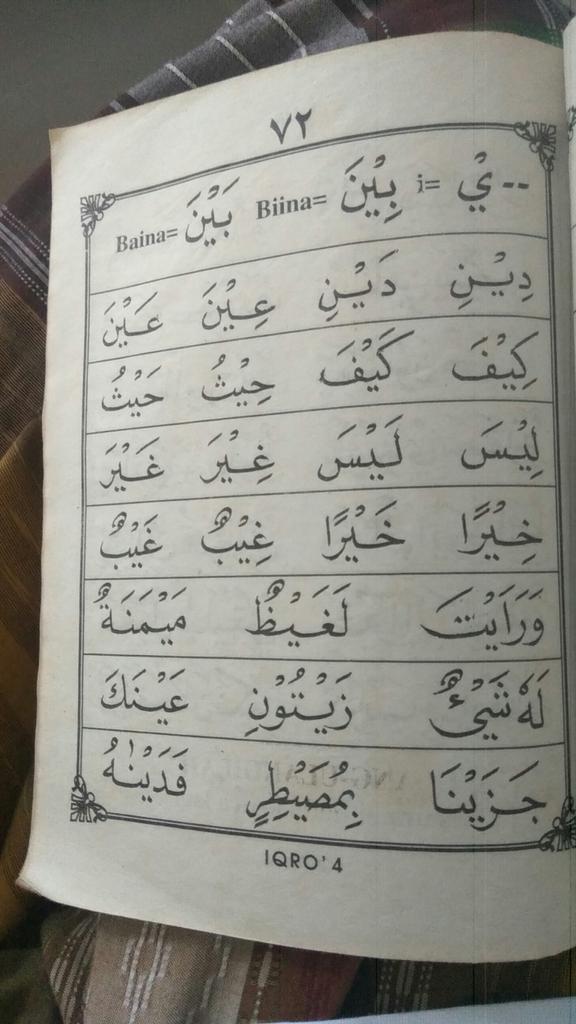 ٧٢
-- يْ =i بِيْنَ =Biina بَيْنَ =Baina
دِيْنِ دَيْنِ عِيْنَ عَيْنَ
كِيْفَ كَيْفَ حِيْثُ حَيْثُ
لِيْسَ لَيْسَ غِيْرَ غَيْرَ
خِيْرًا خَيْرًا غِيْبٌ غَيْبٌ
وَرَاَيْتَ لَغَيْظٌ مَيْمَنَةٌ
لَهٗ شَيْءٌ زَيْتُوْنِ عَيْنَكَ
جَزَيْنَا بِمُصَيْطِرٍ فَدَيْنٰهُ
IQRO' 4